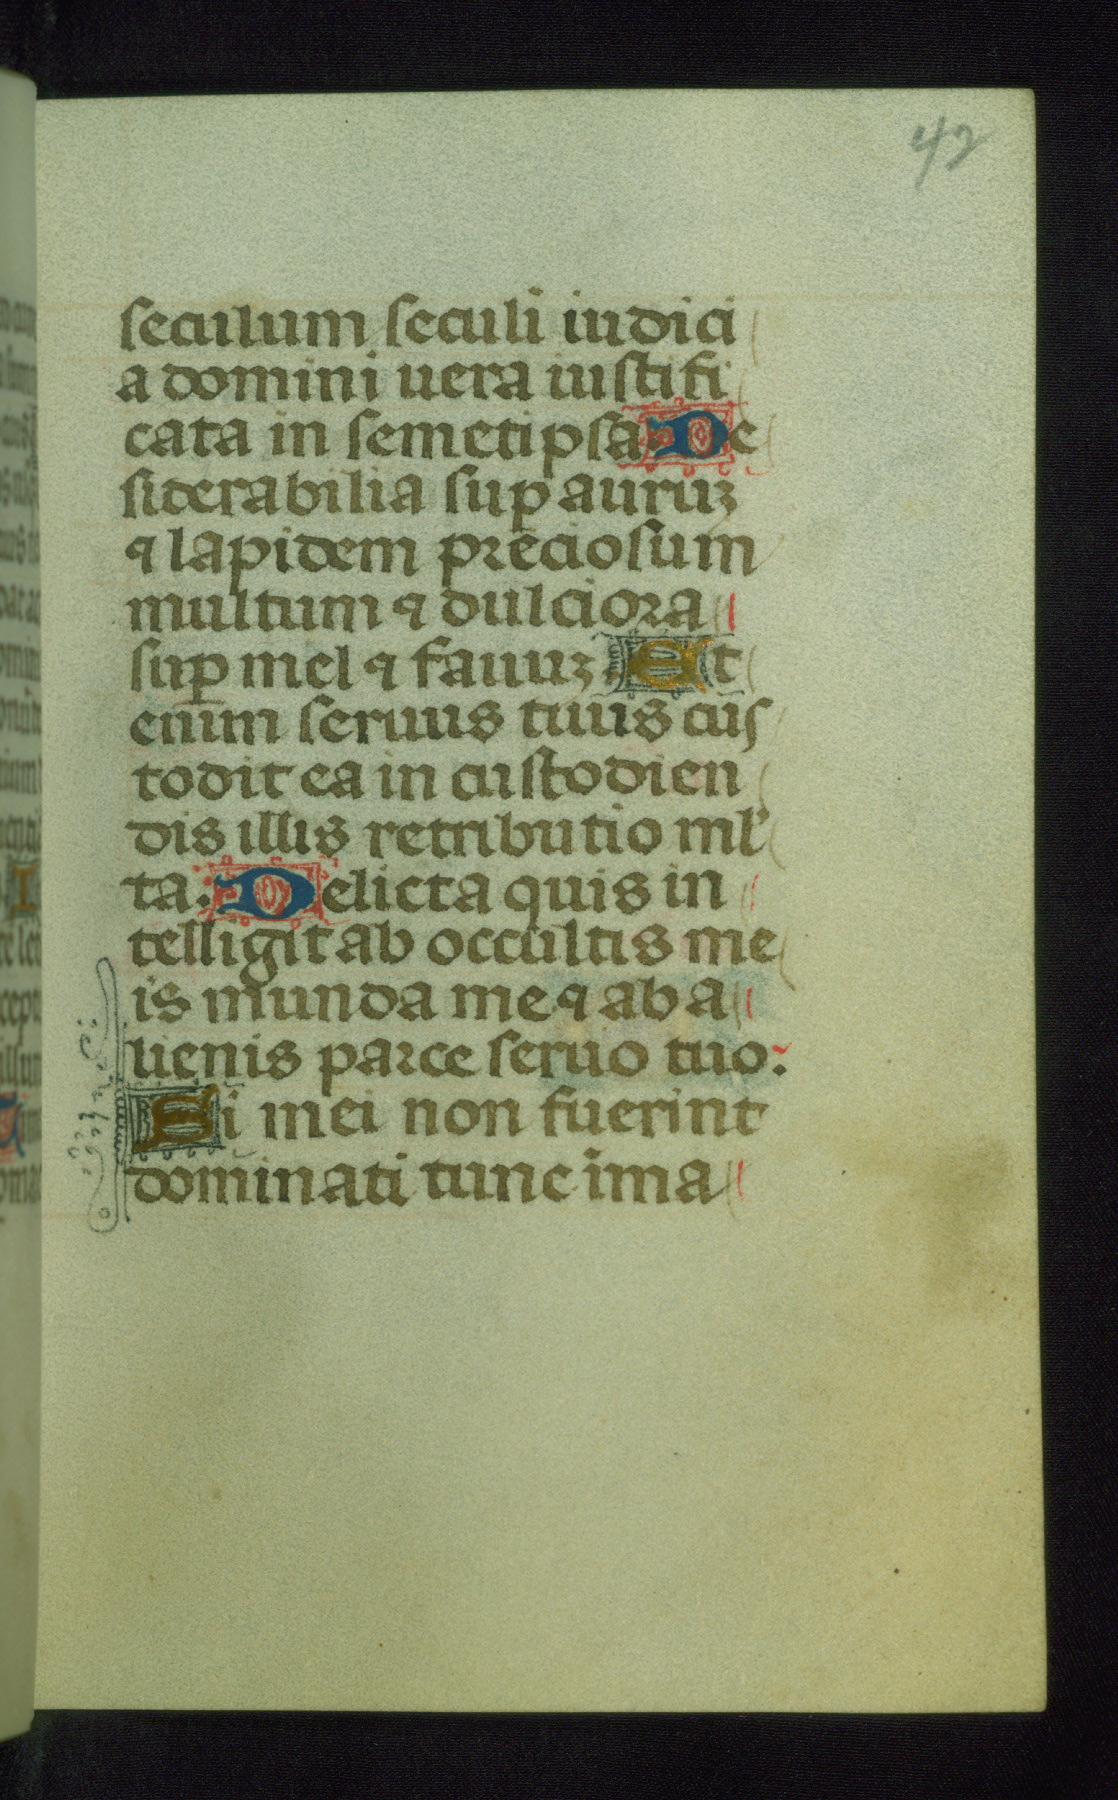 42
seculum seculi iudici
a domini uera iustifi
cata in semetipsa. De
siterabilia sup auruꝫ
⁊ lapidem preciosum
multum ⁊ dulciora
suꝑ mel ⁊ fauuꝫ. Et
enim seruus tuus cus
todit ea in custodien
dis illis retributio ml'
ta. Delicta quis in
telligit ab occultis me
is munda me ⁊ ab a
lienis parce seruo tuo.
Si mei non fuerint
dominati tunc ima